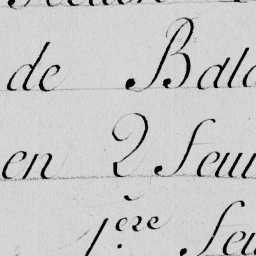 de Bala
en 2 Feui
1.ère Feu